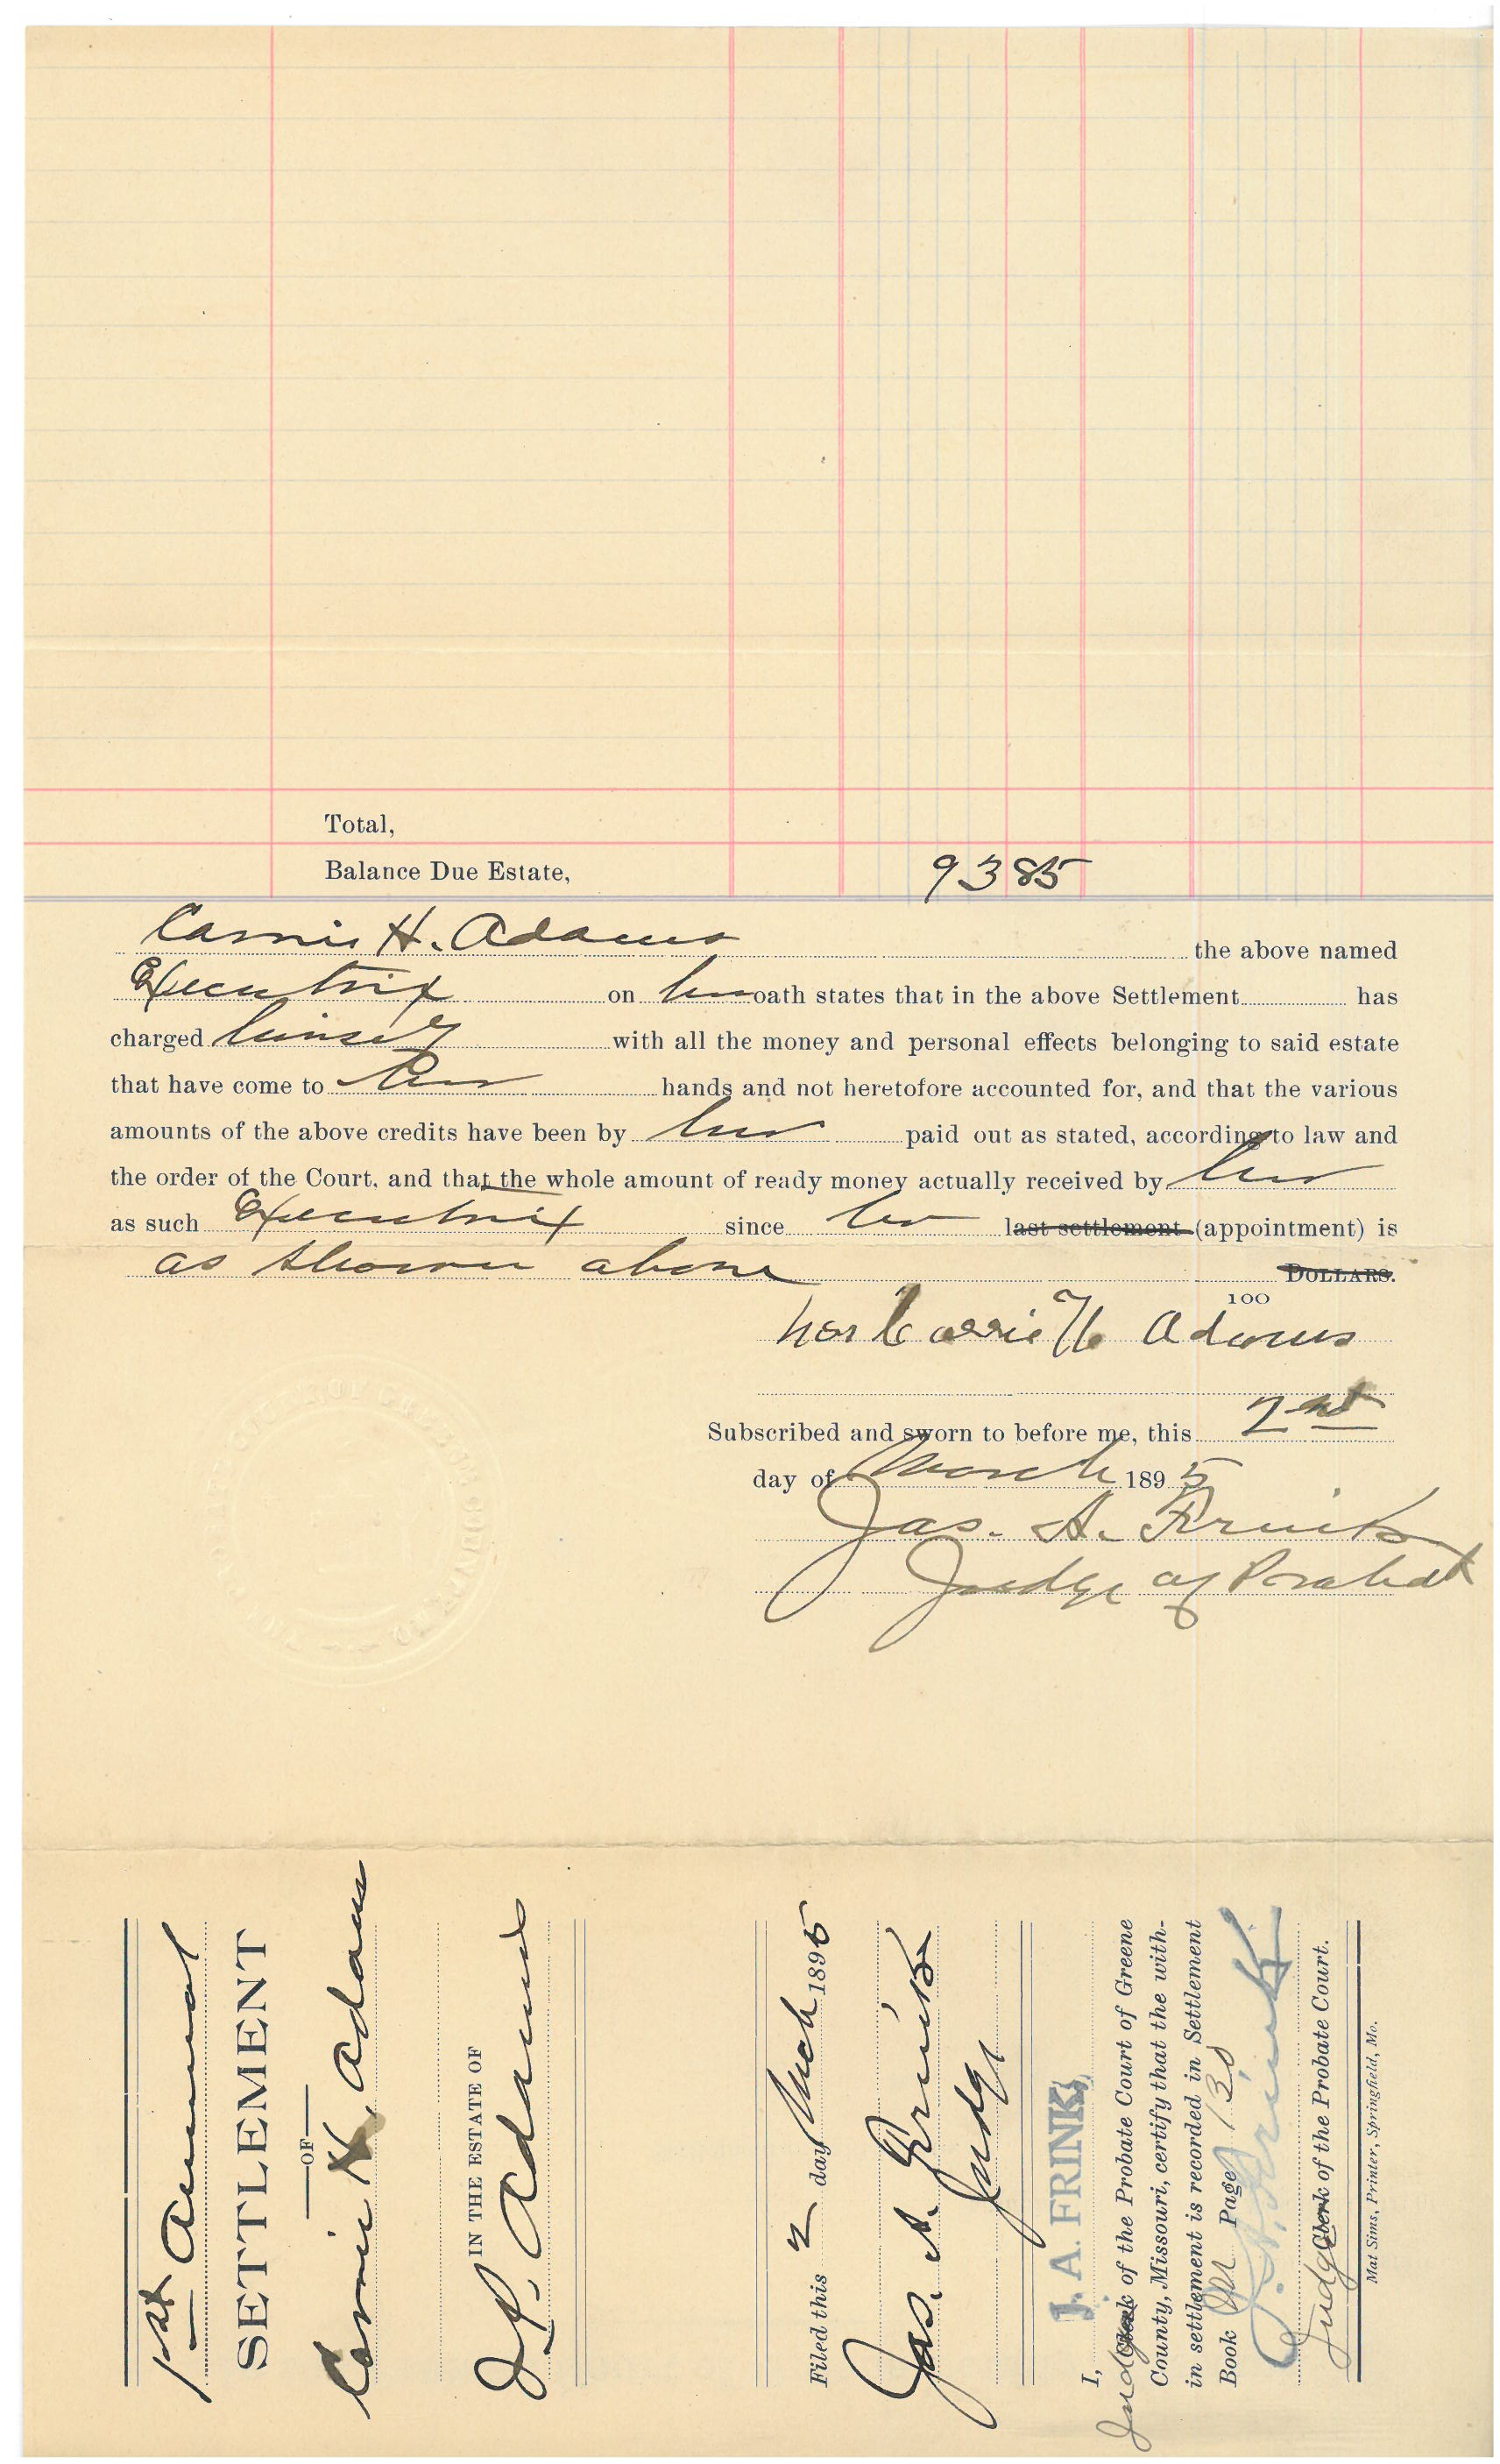 Total,
Balance Due Estate, 93 85
Carrie H. Adams the above named
Executrix on her oath states that in the above Settlement has
charged himself with all the money and personal effects belonging to said estate
that have come to her hands and not heretofore accounted for, and that the various
amounts of the above credits have been by her paid out as stated, according to law and
the order of the Court, and that the whole amount of ready money actually received by her
as such Executrix since her last settlement (appointment) is
as shown above DOLLARS.
100
Mrs Carrie H Adams
Subscribed and sworn to before me, this 2nd
day of March 1895
Jas. A. Frink
Judge of Probate
1st Annual
SETTLEMENT
OF
Carrie H. Adams
IN THE ESTATE OF
J. P. Adams
Filed this 2 day Mch 1895
Jas. A. Frink
Judge
I, J. A. FRINK,
Judge Clerk of the Probate Court of Greene
County, Missouri, certify that the with-
in settlement is recorded in Settlement
Book M Page 130
J. A. Frink
Judge Clerk of the Probate Court.
Mat Sims, Printer, Springfield, Mo.